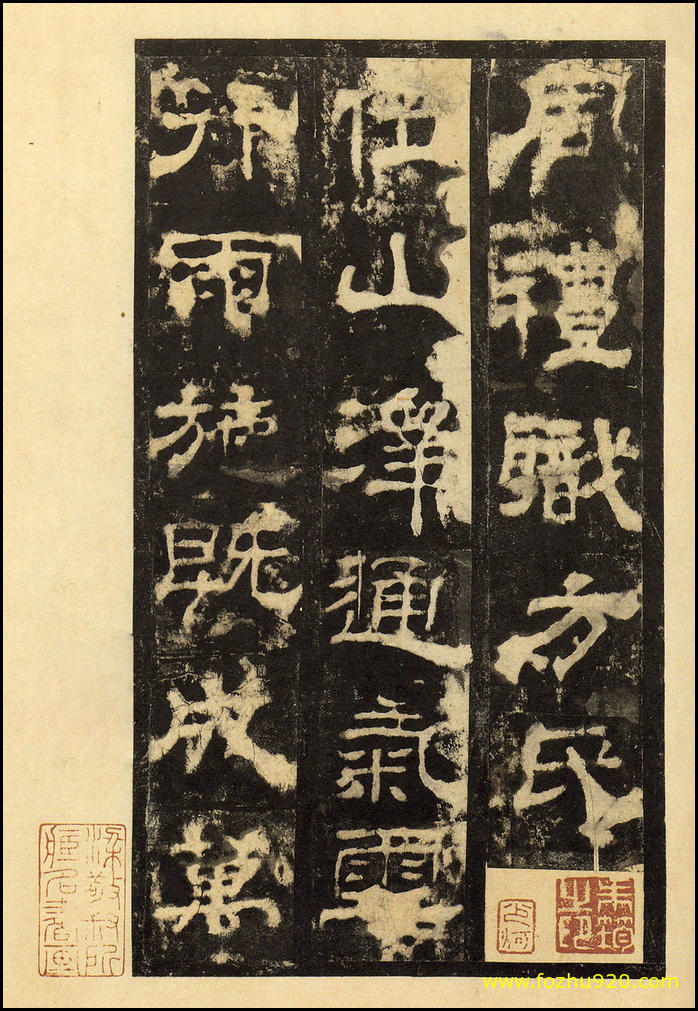 周禮職方氏
位山澤通氣雲
行雨施既成萬
梁敬叔所
www.fozhu920.com